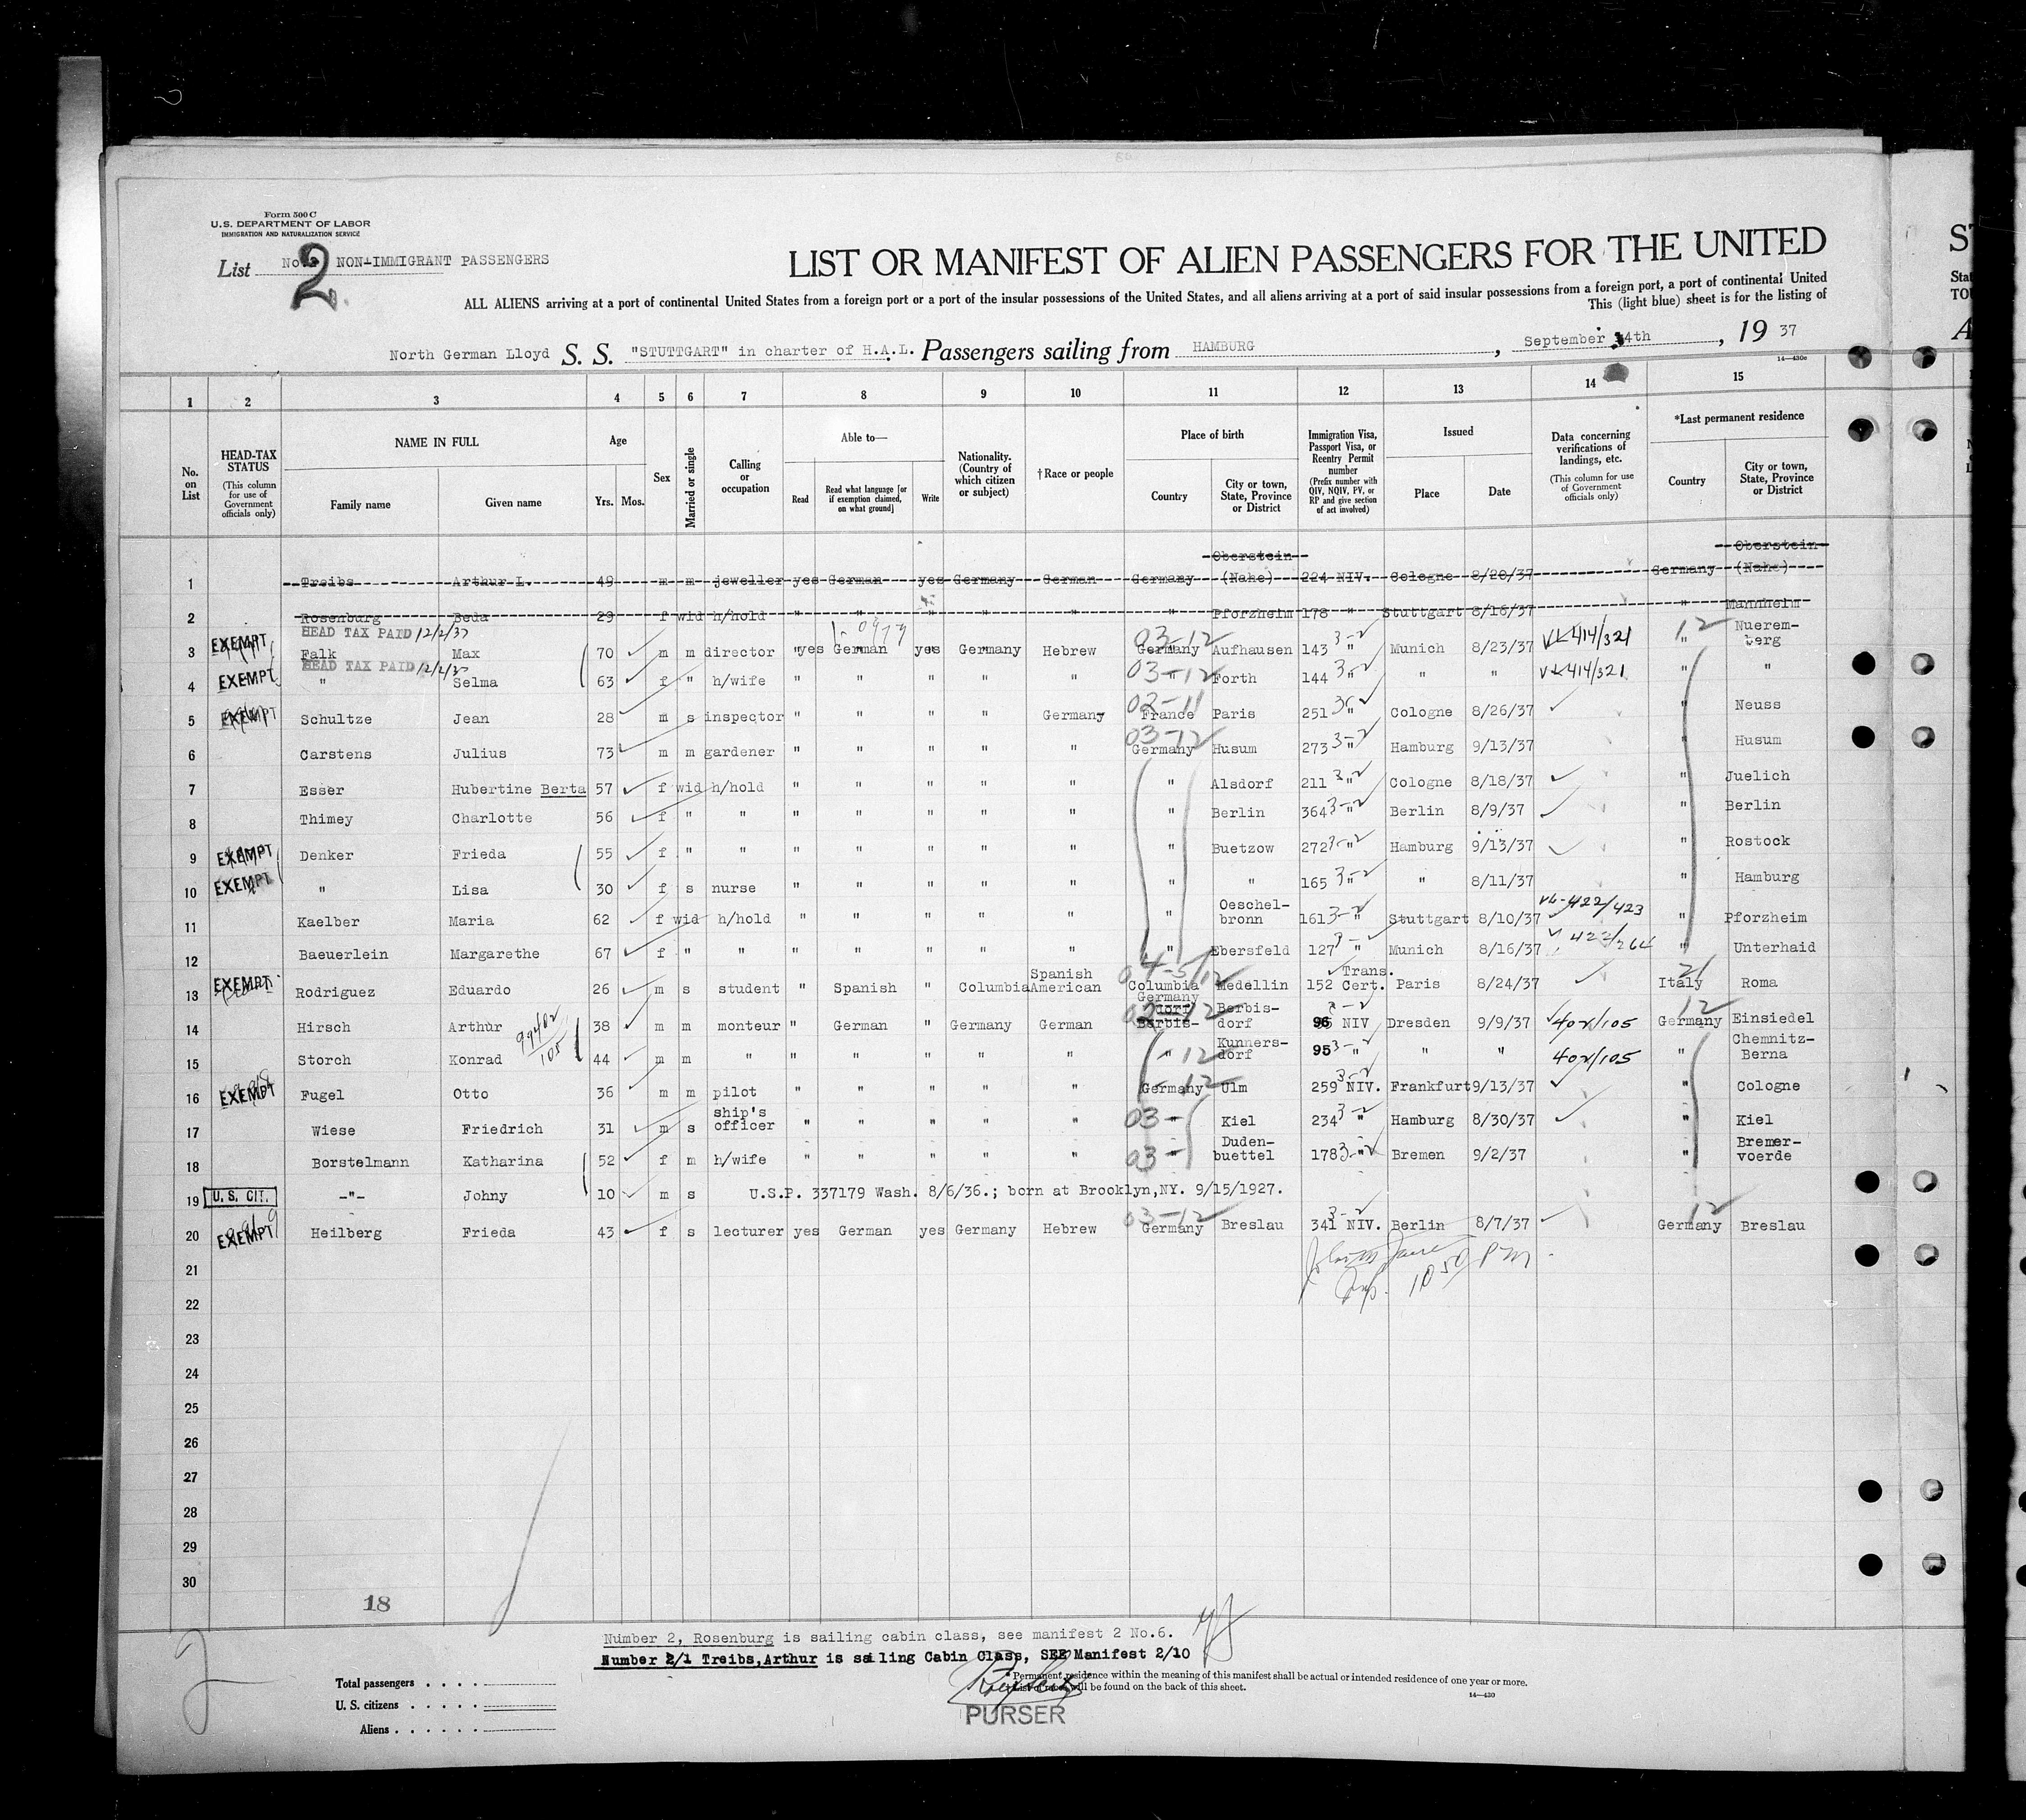 Form 500 C
U.S. DEPARTMENT OF LABOR
IMMIGRATION AND NATURALIZATION SERVICE
List No. 2 NON-IMMIGRANT PASSENGERS
LIST OR MANIFEST OF ALIEN PASSENGERS FOR THE UNITED
ALL ALIENS arriving at a port of continental United States from a foreign port or a port of the insular possessions of the United States, and all aliens arriving at a port of said insular possessions from a foreign port, a port of continental United
This (light blue) sheet is for the listing of
North German Lloyd S. S. "STUTTGART" in charter of H.A.L. Passengers sailing from HAMBURG, September 14th, 19 37
14—430c
1 2 3 4 5 6 7 8 9 10 11 12 13 14 15
No. on List
HEAD-TAX STATUS (This column for use of Government officials only)
NAME IN FULL Family name Given name
Age Yrs. Mos.
Sex
Married or single
Calling or occupation
Able to— Read Read what language [or if exemption claimed, on what ground] Write
Nationality. (Country of which citizen or subject)
†Race or people
Place of birth Country City or town, State, Province or District
Immigration Visa, Passport Visa, or Reentry Permit number (Prefix number with QIV, NQIV, PV, or RP and give section of act involved)
Issued Place Date
Data concerning verifications of landings, etc. (This column for use of Government officials only)
*Last permanent residence Country City or town, State, Province or District
1 Treibs Arthur L. 49 m m jeweller yes German yes Germany German Germany Oberstein (Nahe) 224 NIV. Cologne 8/20/37 Germany Oberstein (Nahe)
2 Rosenburg Beda 29 f wid h/hold " " " " " " Pforzheim 178 " Stuttgart 8/16/37 " Mannheim
HEAD TAX PAID 12/2/37
3 EXEMPT Falk Max 70 m m director yes German yes Germany Hebrew 03-12 Germany Aufhausen 143 3-2 " Munich 8/23/37 414/321 12 " Nuerem-berg
HEAD TAX PAID 12/2/37
4 EXEMPT " Selma 63 f " h/wife " " " " " 03-12 " Forth 144 3-2 " " 414/321 " "
5 EXEMPT Schultze Jean 28 m s inspector " " " " Germany 02-11 France Paris 251 " Cologne 8/26/37 " Neuss
6 Carstens Julius 73 m m gardener " " " " " 03-12 Germany Husum 273 3-2 Hamburg 9/13/37 " Husum
7 Esser Hubertine Berta 57 f wid h/hold " " " " " " Alsdorf 211 " Cologne 8/18/37 " Juelich
8 Thimey Charlotte 56 f " " " " " " " " Berlin 364 3-2 " Berlin 8/9/37 " Berlin
9 EXEMPT Denker Frieda 55 f " " " " " " " Buetzow 272 " Hamburg 9/13/37 " Rostock
10 EXEMPT " Lisa 30 f s nurse " " " " " " 165 3-2 " 8/11/37 " Hamburg
11 Kaelber Maria 62 f wid h/hold " " " " " " Oeschel-bronn 161 3-2 " Stuttgart 8/10/37 422/423 " Pforzheim
12 Baeuerlein Margarethe 67 f " " " " " " " " Ebersfeld 127 " Munich 8/16/37 422/264 " Unterhaid
13 EXEMPT Rodriguez Eduardo 26 m s student " Spanish " Columbia Spanish American Columbia Medellin 152 Trans. Cert. Paris 8/24/37 Italy Roma
14 Hirsch Arthur 38 m m monteur " German " Germany German Germany Berbis-dorf 96 NIV Dresden 9/9/37 402/105 12 Germany Einsiedel
15 Storch Konrad 44 m m " " " " " " " 12 Kunners-dorf 95 3-2 " " " 402/105 " Chemnitz-Berna
16 EXEMPT Fugel Otto 36 m m pilot " " " " " Germany 12 Ulm 259 3-2 NIV. Frankfurt 9/13/37 " Cologne
17 Wiese Friedrich 31 m s ship's officer " " " " " 03- " Kiel 234 3-2 " Hamburg 8/30/37 " Kiel
18 Borstelmann Katharina 52 f m h/wife " " " " " 03- " Duden-buettel 178 3-2 " Bremen 9/2/37 " Bremer-voerde
19 U.S. CIT. -"- Johny 10 m s U.S.P. 337179 Wash. 8/6/36.; born at Brooklyn,NY. 9/15/1927.
20 EXEMPT Heilberg Frieda 43 f s lecturer yes German yes Germany Hebrew 03-12 Germany Breslau 341 3-2 NIV. Berlin 8/7/37 12 Germany Breslau
21
Insp. 10 50 PM
22
23
24
25
26
27
28
29
30
18
Number 2, Rosenburg is sailing cabin class, see manifest 2 No.6.
Number 2/1 Treibs,Arthur is sailing Cabin Class, SEE Manifest 2/10
Total passengers
U. S. citizens
Aliens
* Permanent residence within the meaning of this manifest shall be actual or intended residence of one year or more.
† List of races will be found on the back of this sheet.
14—430
PURSER